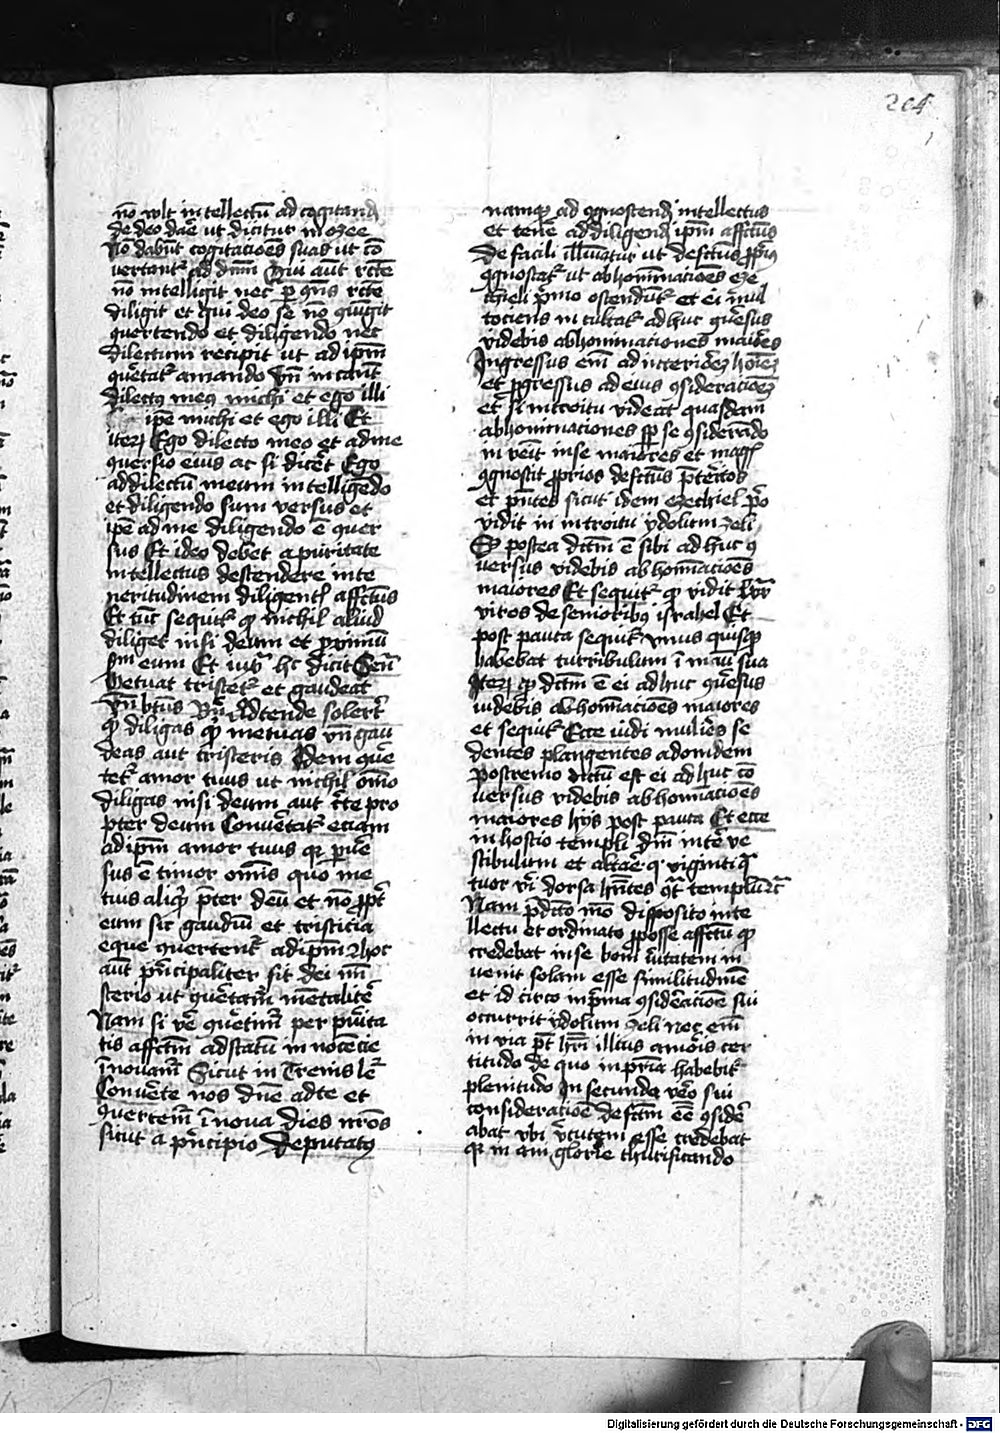 204
no vult intellectu ad cogitand
de deo dare ut dicitur in ozee
No dabunt cogitacioes suas ut co
vertant ad dnm Qui aut rcte
no intelligit nec per qns rcte
diligit et qui deo se no qiugit
quertendo et diligendo nec
dilectum recipit ut ad ipm
quetat amando Un in cant
dilectus meus michi et ego illi
ipe michi et ego illi Et
iterz Ego dilecto meo et ad me
quersio eius ac si dicet Ego
ad dilectu meum intelligedo
et diligendo sum versus et
ipe ad me diligendo e quer
sus Et ideo debet a puritate
intellectus descendere inte
neritudinem diligent affctus
Et tuc sequit q nichil aliud
diliget nisi deum et proximu
sm eum Et iux hc dicit
Metuat tristet et gaudeat
Un btus Attende solert
q diligas q metuas un gau
deas aut tristeris Idem que
tet amor tuus ut nichil omo
diligas nisi deum aut certe pro
pter deum Convertat etiam
ad ipm amor tuus qr pue
sus e timor omis quo me
tuis aliqd pter deu et no ppt
eum sic gaudiu et tristicia
eque quertent ad ipm hoc
aut principaliter fit dei mi
sterio ut quertam mentalite
Nam si ve quertim per puita
tis affctm ad statu innocecie
inovam Sicut in Trenis
Converte nos dne ad te et
quertem inova dies nros
sicut a principio Deputatus
namqz ad qgnoscend intellectus
et tene ad diligend ipm affctus
De facili illuiatur ut defctus pprios
qgnoscat ut abhominacioes eze
chieli primo ostendut et ei mul
tociens in cultat adhuc quesus
videbis abhominaciones maiores
Ingressus em ad interiorez hoiez
et pgressus ad eius qsideracioez
et si in troitu videat quasdam
abhominaciones per se qsiderado
in veit in se maiores et mag
qgnoscit pprios defctus preteritos
et pntes sicut idem ezechiel
vidit in introitu ydolum zeli
Sz postea dctm e sibi adhuc q
versus videbis abhominacioes
maiores Et sequit q vidit
viros de senioribus israhel Et
post pauca sequit vnus quisqz
habebat turribulum i manu sua
Iterz q dctm e ei adhuc quesus
uidebis abhominacioes maiores
et sequit Ecce uidi mulieres se
dentes plangentes adonidem
Postremo dictu est ei adhuc co
versus videbis abhominacioes
maiores hijs post pauca Et ecce
in hostio templi dni inter ve
stibulum et altare q viginti q
tuor viri dorsa hntes templu
Nam pdcto mo disposito inte
llectu et ordinato pposse affctu q
credebat in se boni virtutem in
uenit solam esse similitudine
et id circo in prima qsideracioe sui
occurrit ydolum zeli nec em
in via pt hri illius amoris cer
titudo de quo in pria habebit
plenitudo In secunda vero sui
consideracioe defctm ee qside
abat ubi virtutem esse credebat
qr in am glorie thurificando
Digitalisierung gefördert durch die Deutsche Forschungsgemeinschaft - DFG